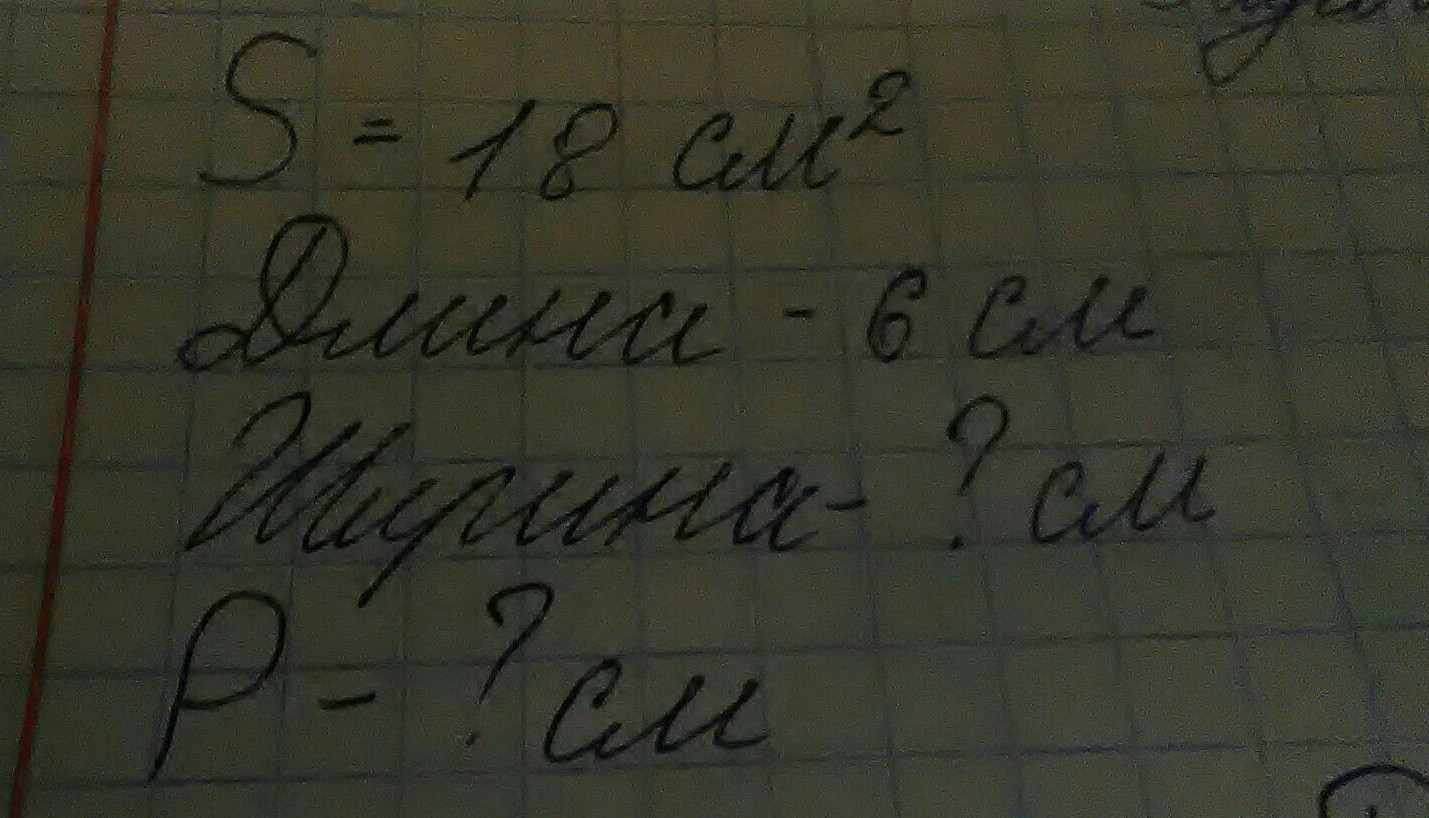 S = 18 см²
Длина - 6 см
Ширина - ? см
P - ? см